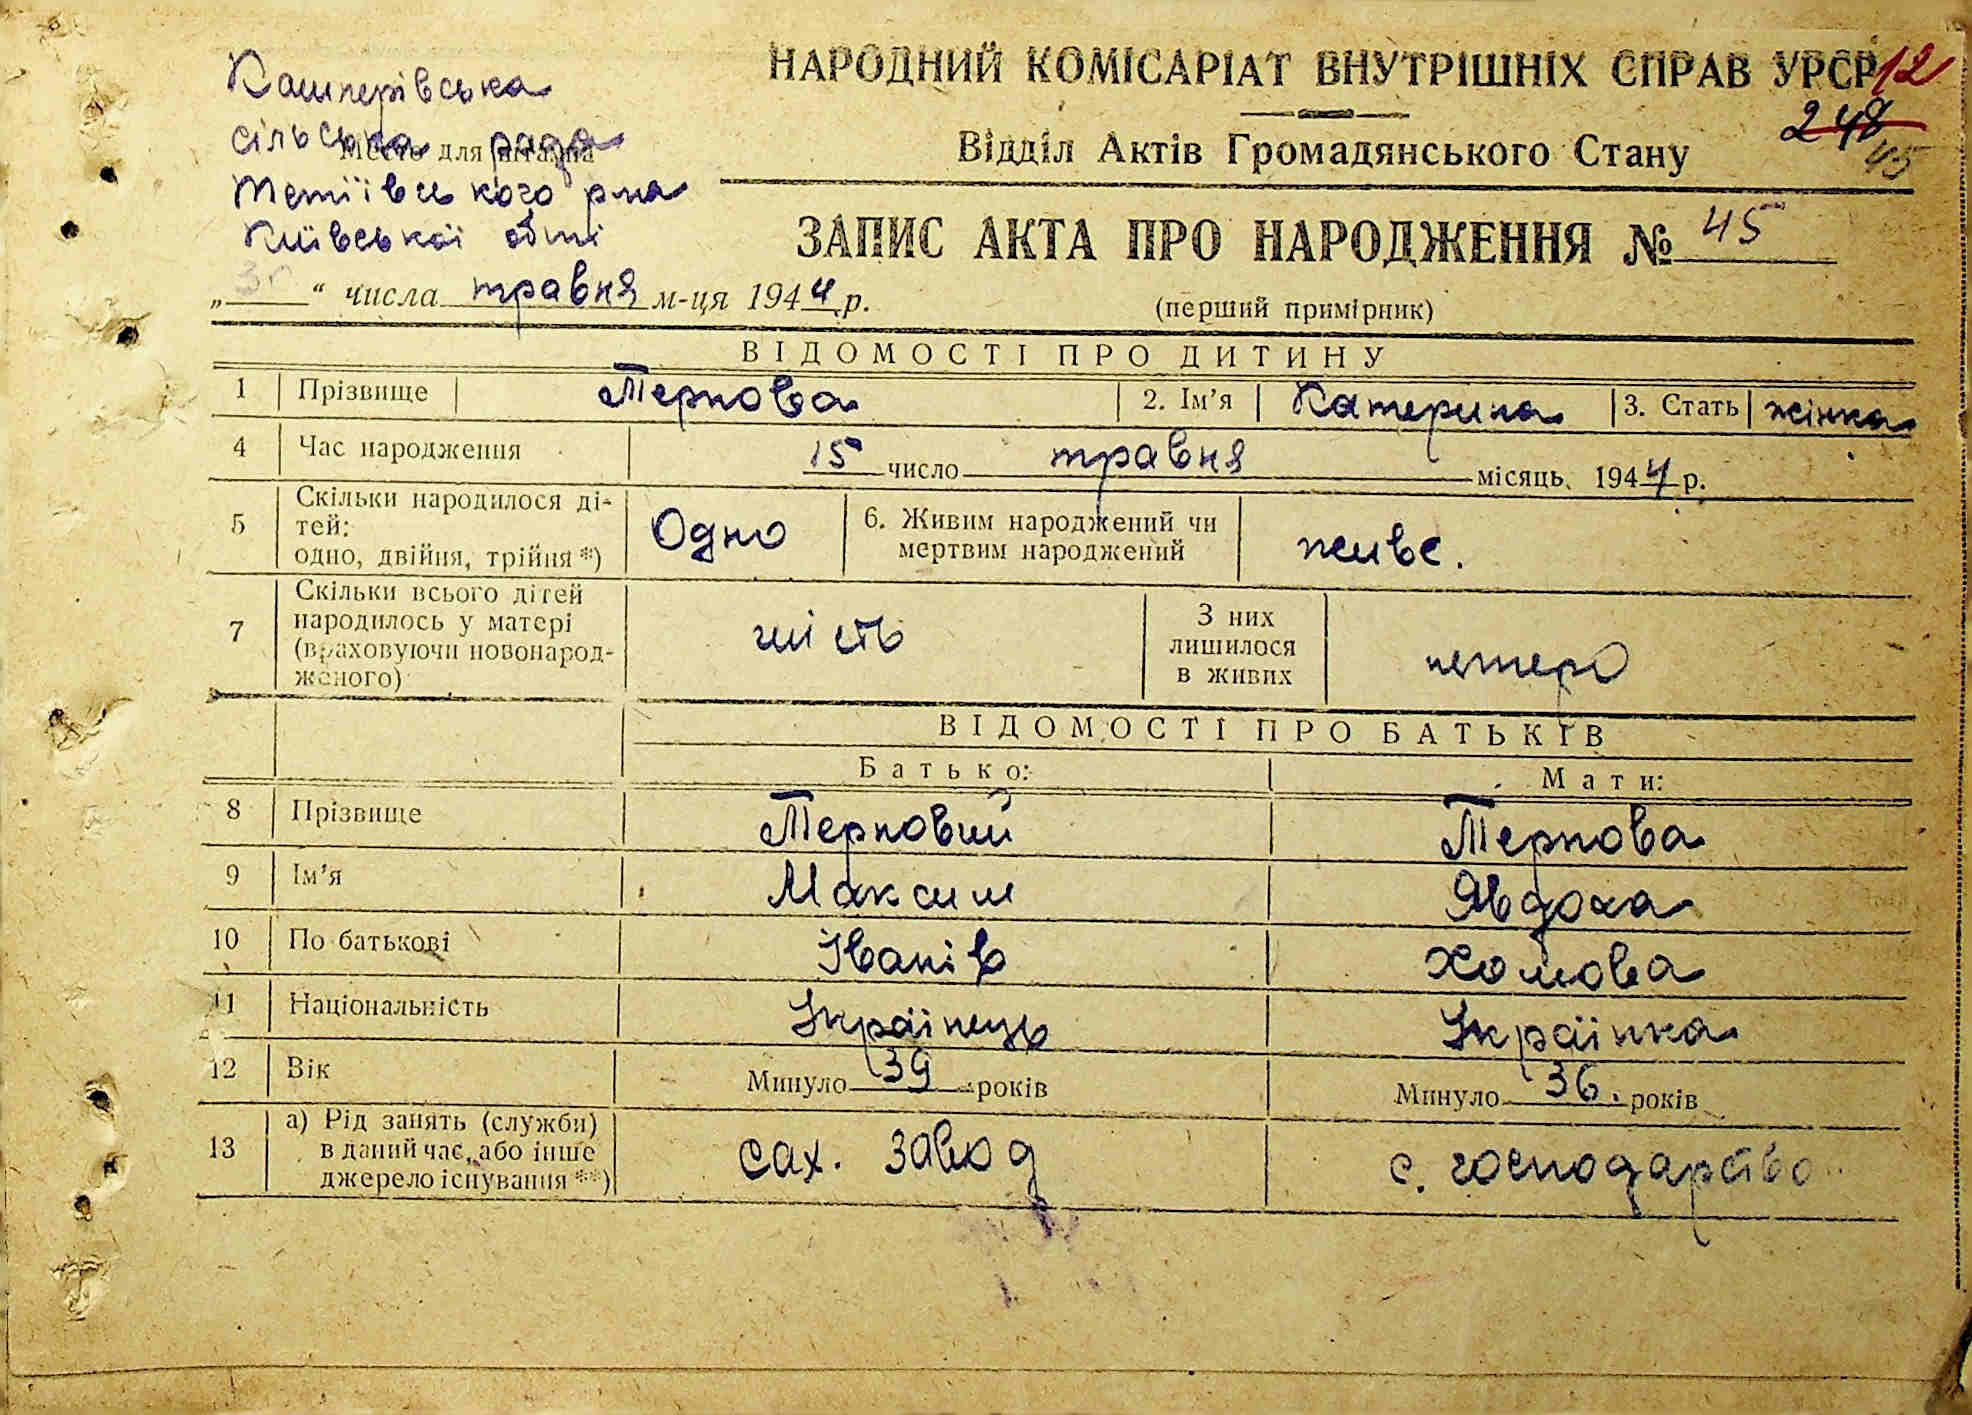 НАРОДНИЙ КОМІСАРІАТ ВНУТРІШНІХ СПРАВ УРСР 12
248
45
Відділ Актів Громадянського Стану
Кашперівська
сільська рада
Місце для штампа
Тетіївського р-на
Київської обл
ЗАПИС АКТА ПРО НАРОДЖЕННЯ № 45
„ “ числа травня м-ця 1944 р.
(перший примірник)
ВІДОМОСТІ ПРО ДИТИНУ
1 Прізвище Тернова 2. Ім'я Катерина 3. Стать жінка
4 Час народження 15 число травня місяць 1944 р.
5 Скільки народилося ді-
тей:
одно, двійня, трійня *) Одно 6. Живим народжений чи
мертвим народжений живе.
7 Скільки всього дітей
народилось у матері
(враховуючи новонарод-
женого) шість З них
лишилося
в живих четверо
ВІДОМОСТІ ПРО БАТЬКІВ
Батько: Мати:
8 Прізвище Терновий Тернова
9 Ім'я Максим Явдоха
10 По батькові Іванів Хомова
11 Національність Українець Українка
12 Вік Минуло 39 років Минуло 36. років
13 а) Рід занять (служби)
в даний час, або інше
джерело існування **) сах. завод с. господарство